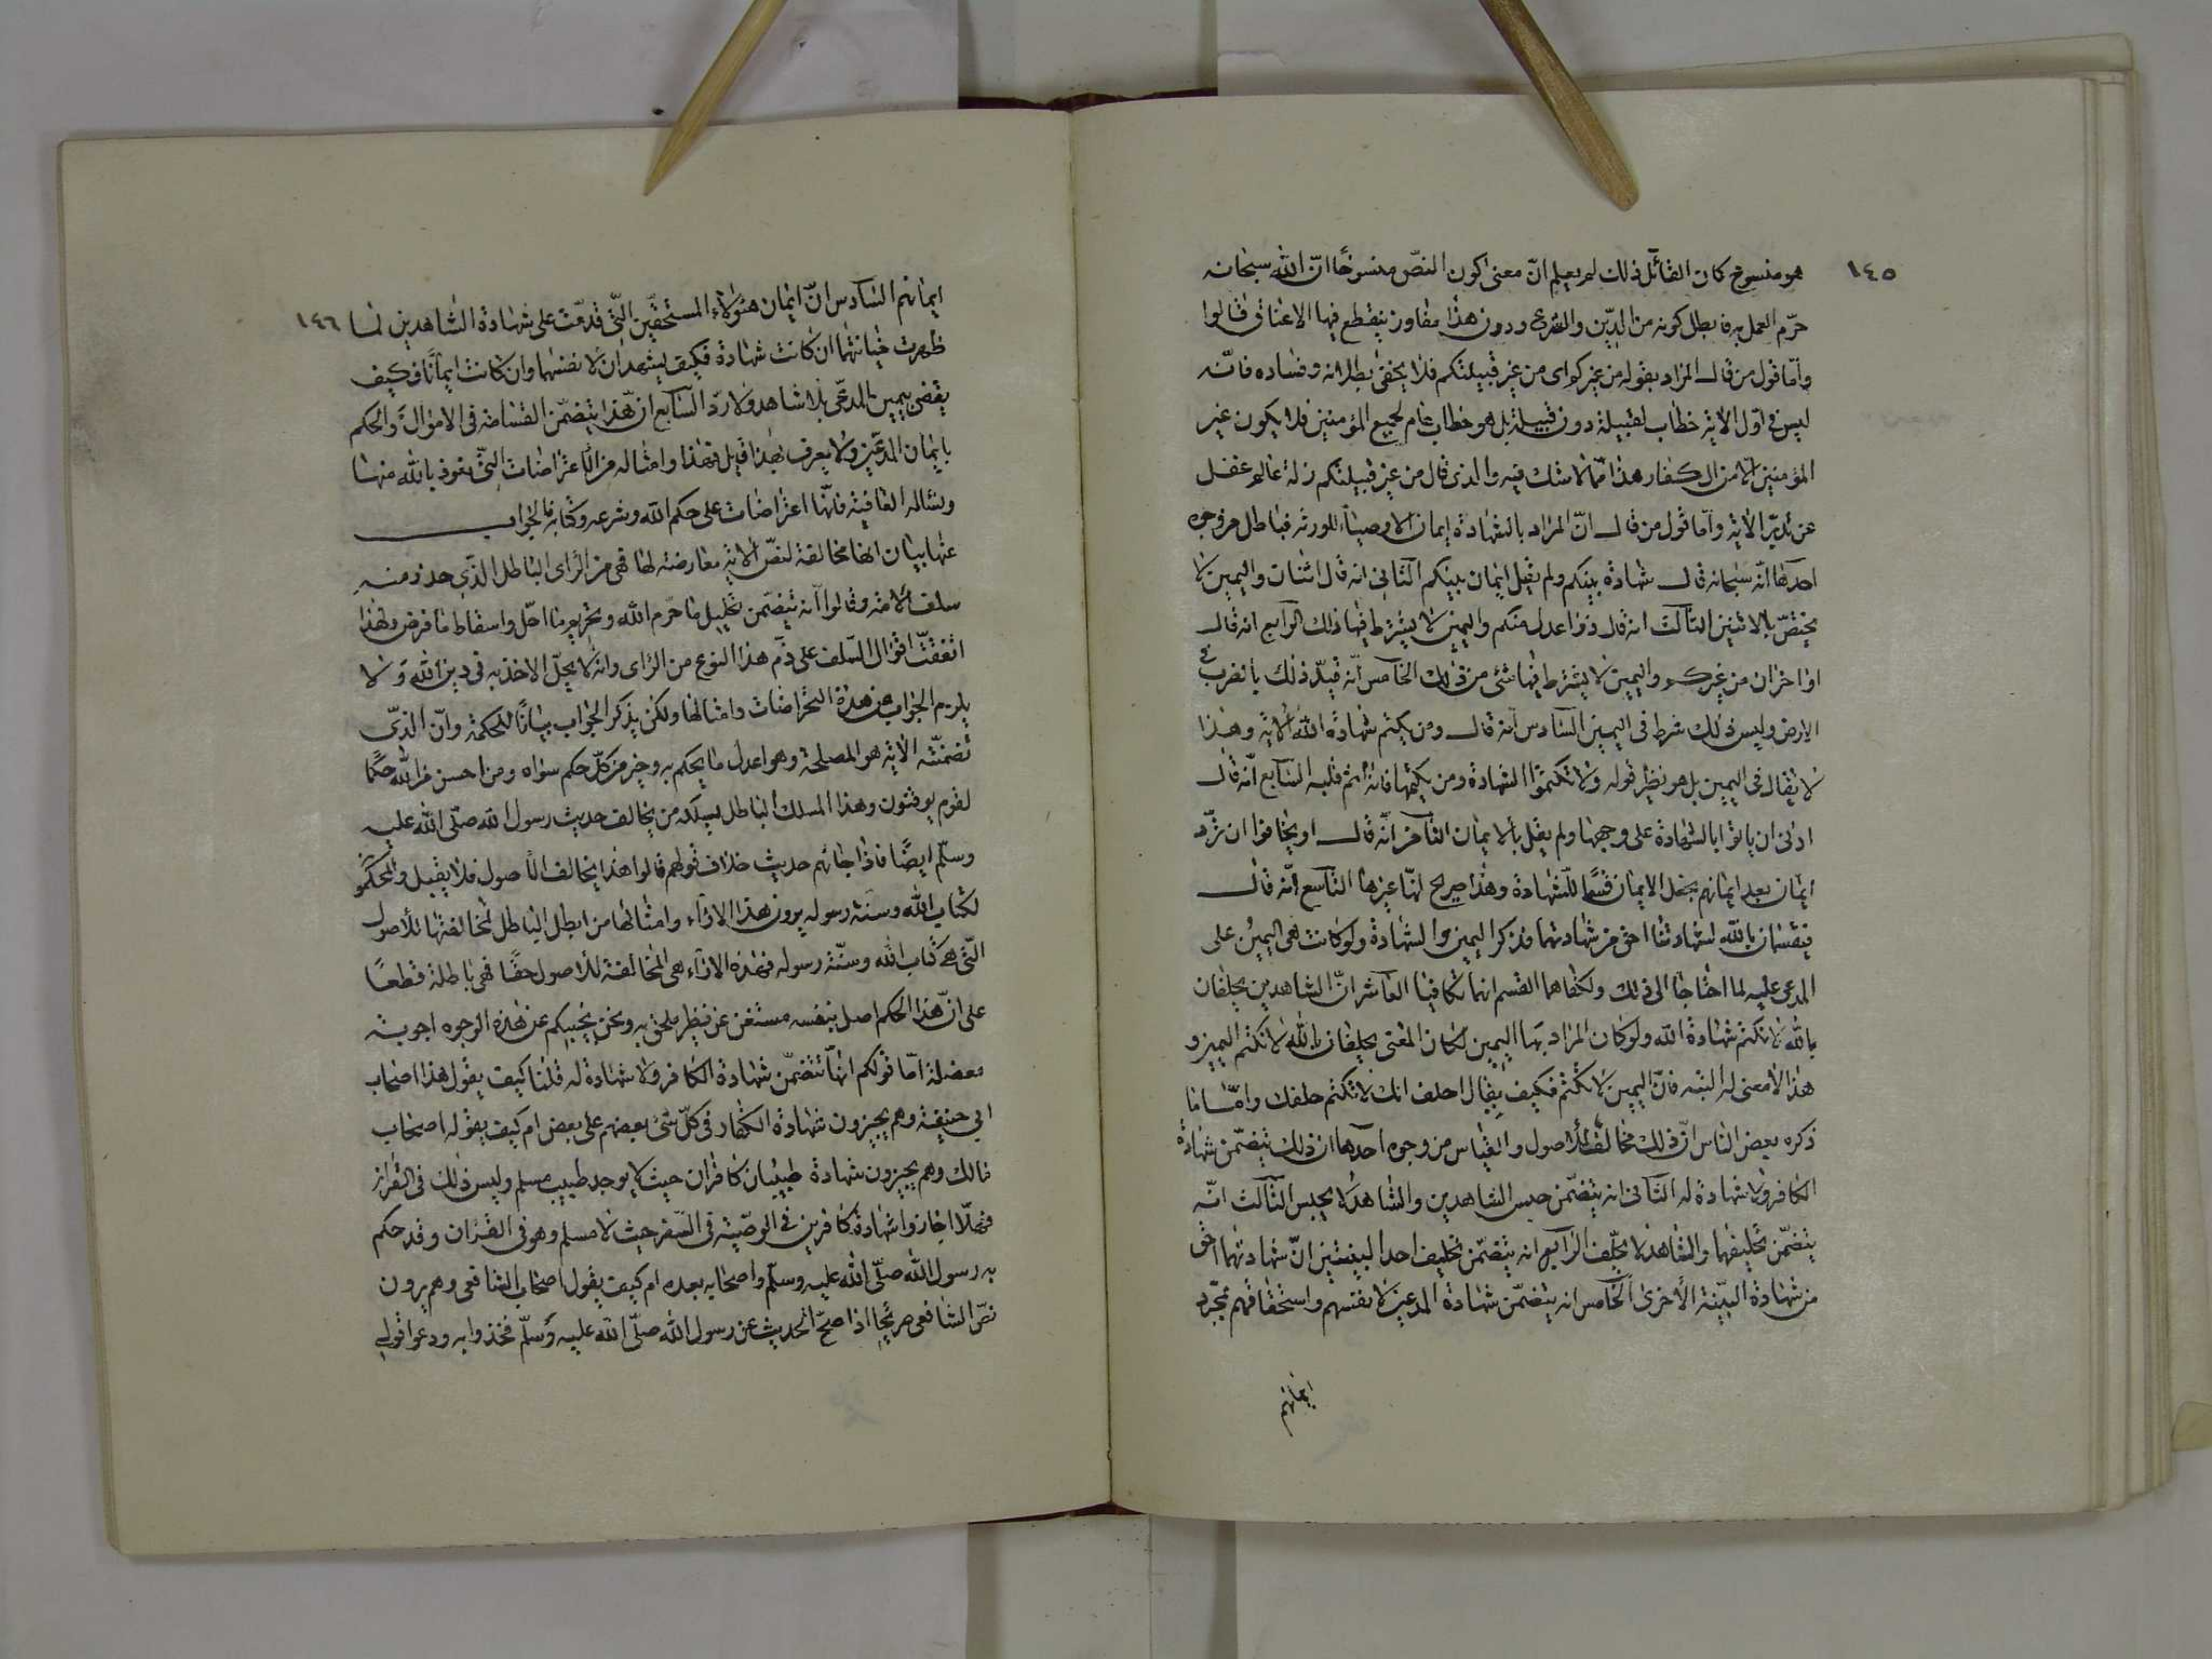 ١٤٥
هو منسوخ كان القائل ذلك لم يعلم انّ معنى كون النصّ منسوخًا انّ الله سبحانه
حرّم العمل به فابطل كونه من الدّين والشرع ودون هذا مفاوز ينقطع فيها الاعناق قالوا
وامّا قول من قال المراد بقوله من غيركم اى من غير قبيلتكم فلا يخفى بطلانه وفساده فانّه
ليس فى اوّل الاية خطاب لقبيلة دون قبيلة بل هو خطاب عام لجميع المؤمنين فلا يكون غير
المؤمنين الّا من الكفار هذا ممّا لا شك فيه والذى قال من غير قبيلتكم زلة عالم غفل
عن تدبّر الاية وامّا قول من قال انّ المراد بالشهادة ايمان الاوصياء للورثه فباطل من وجوه
احدها انّه سبحانه قال شهادة بينكم ولم يقل ايمان بينكم الثانى انه قال اثنان واليمين لا
يختصّ بالاثنين الثالث انه قال ذوا عدل منكم واليمين لا يشترط فيها ذلك الرابع انه قال
او اخران من غيركم واليمين لا يشترط فيها شئ من ذلك الخامس انّه قيّد ذلك بالضرب فى
الارض وليس ذلك شرط فى اليمين السادس انه قال ومن يكتم شهادة الله الاية وهذا
لا يقال فى اليمين بل هو نظير قوله ولا تكتموا الشهادة ومن يكتمها فانه اثم قلبه السابع انّه قال
ادنى ان ياتوا بالشهادة على وجهها ولم يقل بالايمان الثامن انّه قال او يخافوا ان تردّ
ايمان بعد ايمانهم بجعل الايمان قسمًا للشهادة وهذا صريح انّها غيرها التاسع انّه قال
فيقسمان بالله لشهادتنا احق من شهادتهما فذكر اليمين والشهادة ولو كانت هى اليمين على
المدعى عليه لما احتاجا الى ذلك ولكفاهما القسم انهما كافيا العاشر انّ الشاهدين يحلفان
بالله لا نكتم شهادة الله ولو كان المراد بها اليمين لكان المعنى يحلفان بالله لا نكتم اليمين و
هذا لا معنى له البتة فانّ اليمين لا تكتم فكيف يقال احلف انك لا تكتم حلفك وامّا ما
ذكره بعض الناس انّ ذلك مخالف للاصول والقياس من وجوه احدها ان ذلك يتضمّن شهادة
الكافر ولا شهادة له الثانى انه يتضمّن حبس الشاهدين والشاهد لا يحبس الثالث انّه
يتضمّن تحليفهما والشاهد لا يحلّف الرابع انه يتضمّن تحليف احدا لبينتين انّ شهادتهما احق
من شهادة البيّنة الاخرى الخامس انه يتضمّن شهادة المدعين لانفسهم واستحقاقهم بمجرّد
ايمانهم
١٤٦
ايمانهم السادس انّ ايمان هؤلاء المستحقّين الّتى قدمت على شهادة الشاهدين لما
ظهرت خيانتهما ان كانت شهادة فكيف يشهدان لانفسهما وان كانت ايمانًا فكيف
يقضى بيمين المدعّى بلا شاهد ولا ردّ السابع انّ هذا يتضمّن القسامة فى الاموال والحكم
بايمان المدّعين ولا يعرف بهذا قيل فهذا وامثاله من الاعتراضات التى نعوذ بالله منها
ونساله العافية فانّها اعتراضات على حكم الله وشرعه وكتابه فالجواب
عنها بيان انها مخالفة لنصّ الاية معارضة لها فهى من الراى الباطل الذى حذر منه
سلف الامة وقالوا انه يتضمّن تحليل ما حرّم الله وتحريم ما احلّ واسقاط ما فرض ولهذا
اتفقت اقوال السلف على ذّم هذا النوع من الراى وانه لا يحلّ الاخذ به فى دين الله ولا
يلزم الجواب عن هذه الاعتراضات وامثالها ولكن يذكر الجواب بيانًا للحكمة وانّ الذى
تضمنته الاية هو المصلحة وهو اعدل ما يحكم به وخير من كلّ حكم سواه ومن احسن من الله حكمًا
لقوم يوقنون وهذا المسلك الباطل يسلكه من يخالف حديث رسول الله صلّى الله عليه
وسلّم ايضًا فاذا جائهم حديث خلاف قولهم قالوا هذا يخالف الاصول فلا يقبل والمحكمو
لكتاب الله وسنة رسوله يرون هذا الآراء وامثالها من ابطل الباطل لمخالفتها للاصول
الّتى هى كتاب الله وسنّة رسوله فهذه الآراء هى المخالفة للاصول حقًا فهى باطلة قطعًا
على انّ هذا الحكم اصل بنفسه مستغن عن نظير ملحق به ونحن نجيبكم عن هذه الوجوه اجوبة
مفصلة امّا قولكم انها تتضمّن شهادة الكافر ولا شهادة له قلنا كيف يقول هذا اصحاب
ابى حنيفة وهم يجيزون شهادة الكفار فى كلّ شئ بعضهم على بعض ام كيف يقوله اصحاب
مالك وهم يجيزون شهادة طبيبان كافران حيث لا يوجد طبيب مسلم وليس ذلك فى القران
فهلّا اجازوا شهادة كافرين فى الوصيّة فى السفر حيث لا مسلم وهو فى القران وقد حكم
به رسول الله صلّى الله عليه وسلّم واصحابه بعده ام كيف يقول اصحاب الشافعى وهم يرون
نصّ الشافعى صريحًا اذا صحّ الحديث عن رسول الله صلّى الله عليه وسلّم فخذوا به ودعوا قولى